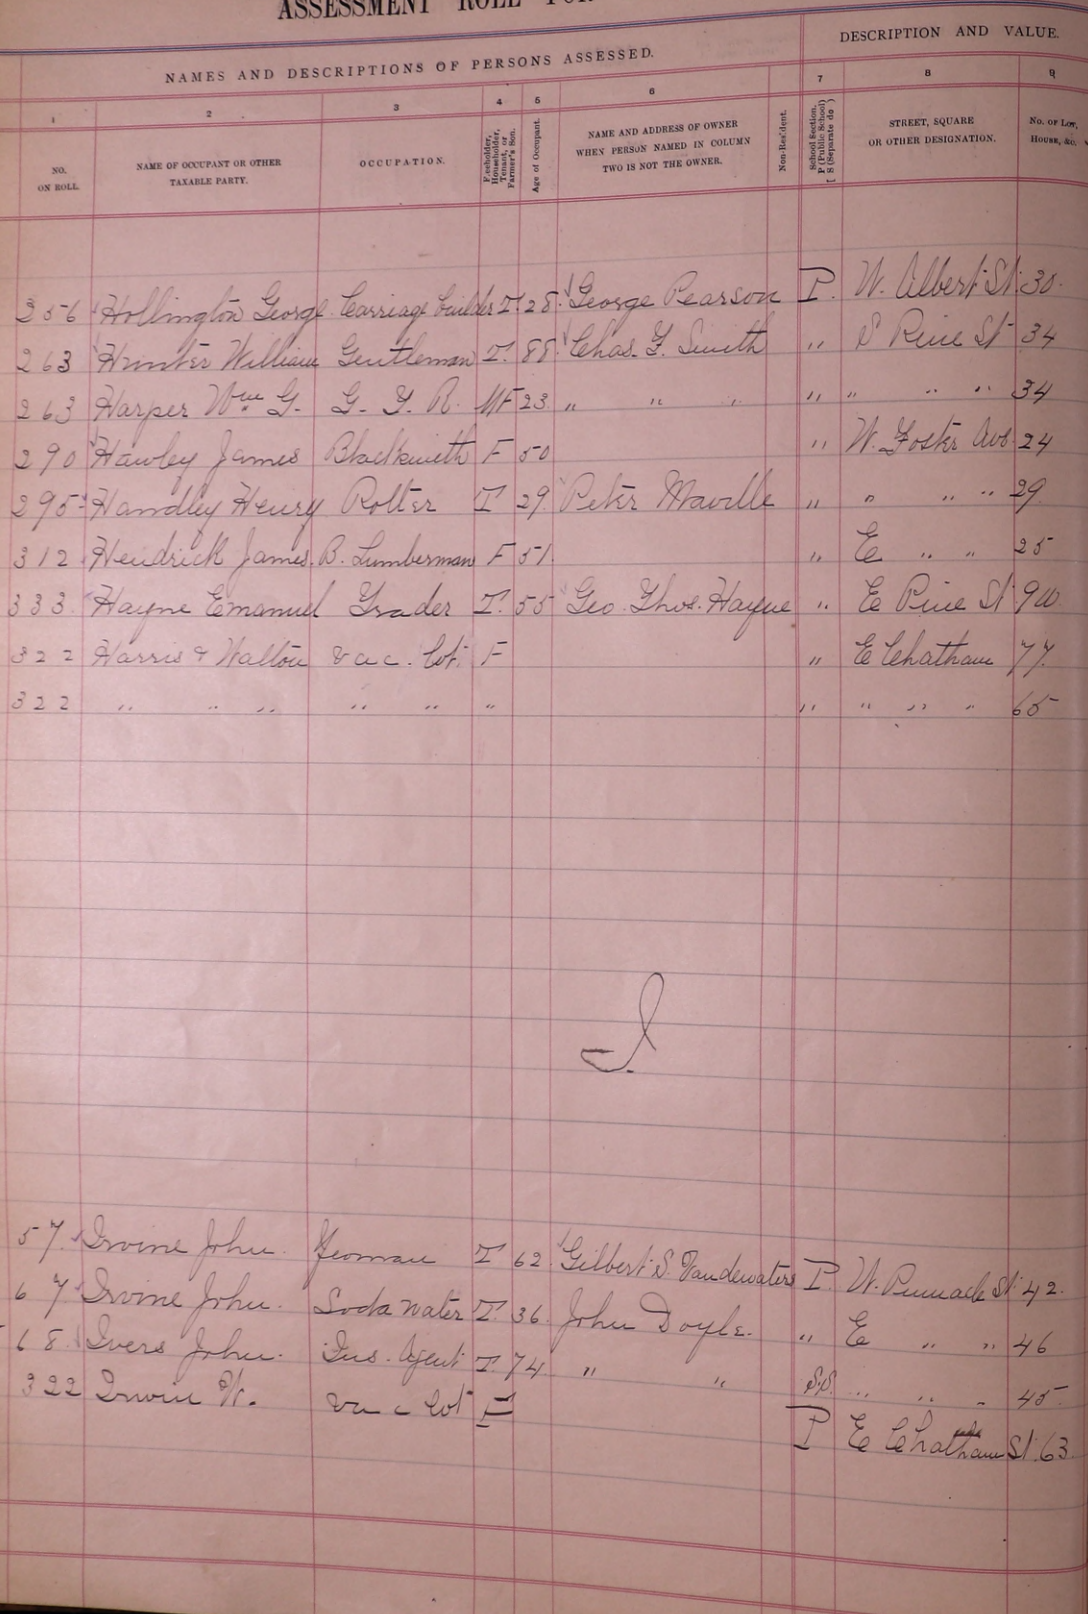 ASSESSMENT ROLL FOR
NAMES AND DESCRIPTIONS OF PERSONS ASSESSED.
DESCRIPTION AND VALUE.
1 2 3 4 5 6 7 8 9
NO. ON ROLL.
NAME OF OCCUPANT OR OTHER TAXABLE PARTY.
OCCUPATION.
Freeholder, Householder, Tenant, or Farmer's Son.
Age of Occupant.
NAME AND ADDRESS OF OWNER WHEN PERSON NAMED IN COLUMN TWO IS NOT THE OWNER.
Non-Resident.
School Section, P (Public School) S (Separate do )
STREET, SQUARE OR OTHER DESIGNATION.
No. of Lot, House, &c.
256 Hollington George Carriage builder T 28 George Pearson P. W. Albert St. 30
263 Hunter William Gentleman T. 88 Chas. G. Smith " S Pine St 34
263 Harper Wm G. G. T. R. MF 23 " " " " " " " 34
290 Hawley James Blacksmith F 50 " W. Foster Ave 24
295 Handley Henry Potter T 29 Peter Maville " " " " 29
312 Hendrick James. B. Lumberman F 51. " E " " 25
333. Hayne Emanuel Grader T. 55 Geo. Thos. Hayne " E Pine St 90
322 Harris & Walton vac. lot. F " E Chatham 77.
322 " " " " " " " " " " 65
I
57. Irvine John. Yeoman T 62. Gilbert S. Vandewaters P. W. Pinnacle St. 42.
67 Irvine John. Soda Water T. 36. John Doyle. " E " " 46
68. Ivers John. Ins. Agent T. 74 " " S.S. " " " 45.
322 Irwin W. vac lot F P E Chatham St. 63